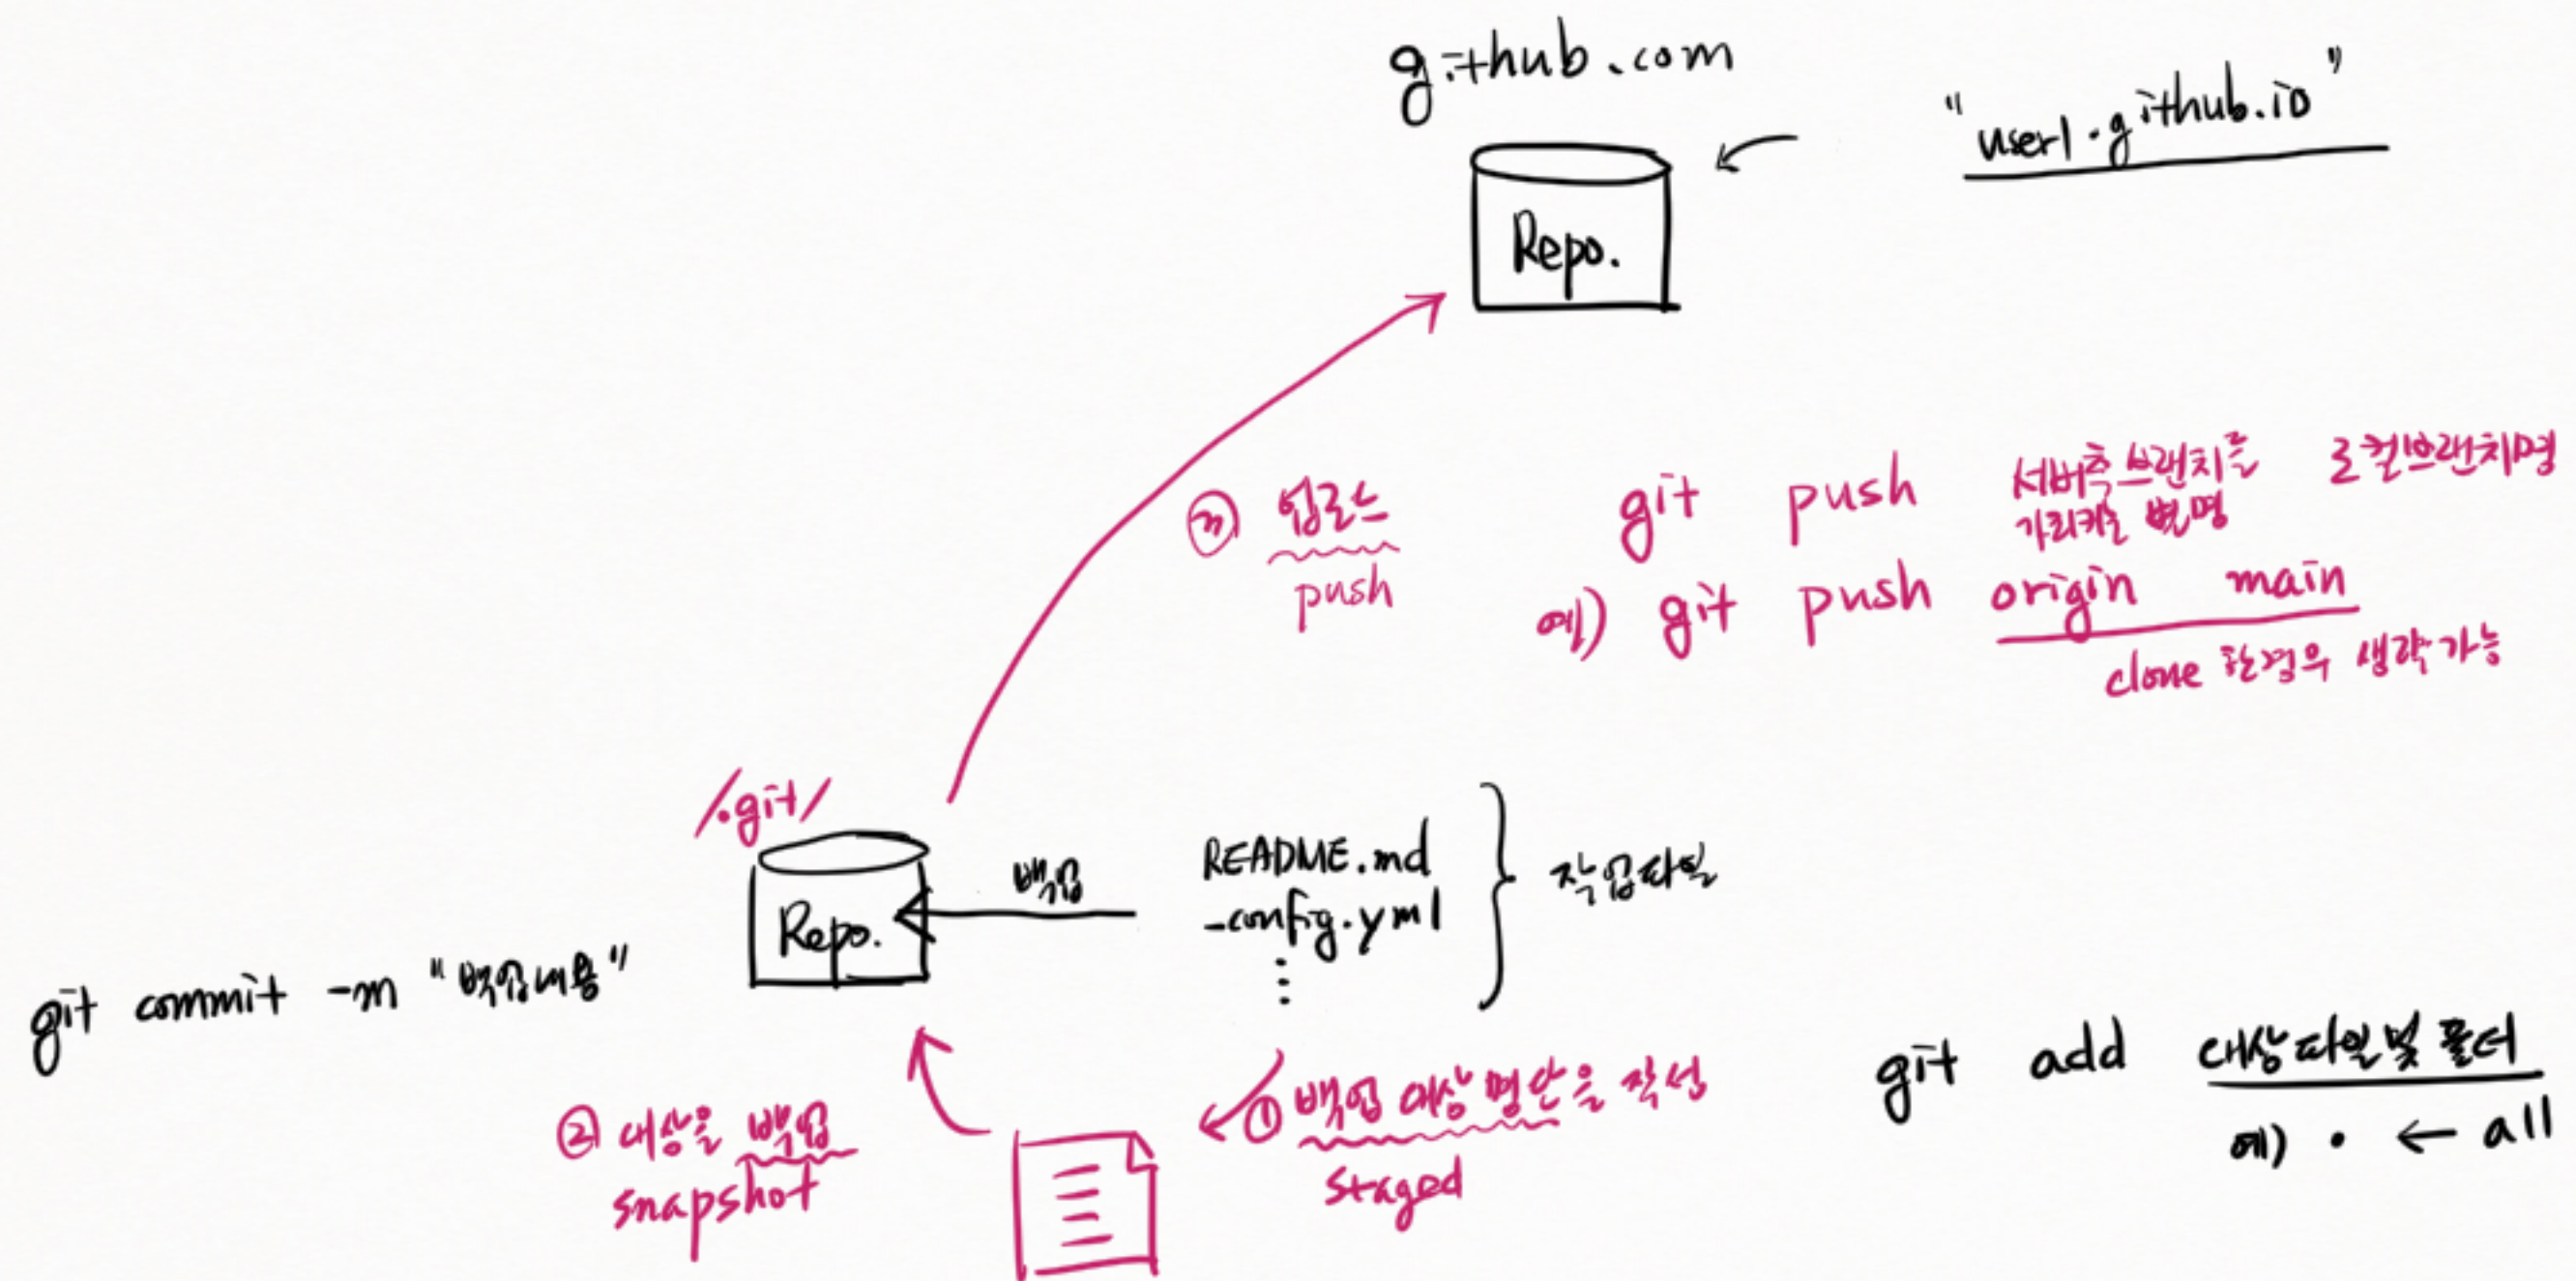 github.com
"user1.github.io"
Repo.
③ 업로드
push
git push 서버측브랜치를 가리키는 별명 로컬브랜치명
예) git push origin main
clone 한경우 생략가능
/.git/
Repo.
백업
README.md
_config.yml
⋮
작업파일
git commit -m "백업내용"
② 대상을 백업
snapshot
① 백업 대상 명단을 작성
staged
git add 대상파일및 폴더
예) . ← all